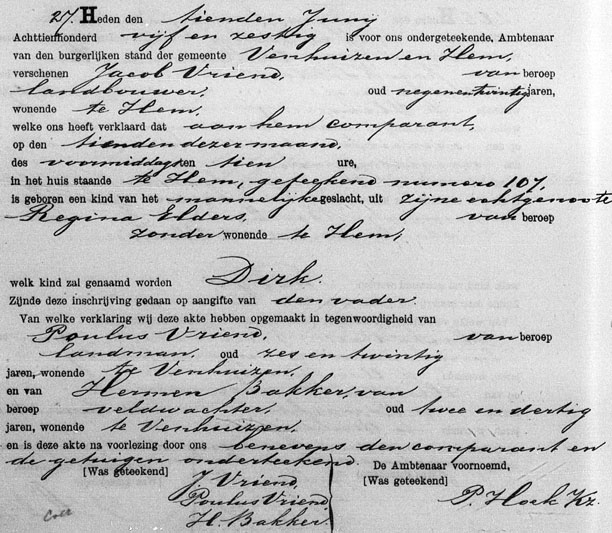 27. Heden den tienden Junij
Achttienhonderd vijf en zestig is voor ons ondergeteekende, Ambtenaar
van den burgerlijken stand der gemeente Venhuizen en Hem,
verschenen Jacob Vriend, van beroep
landbouwer, oud negenentwintig jaren,
wonende te Hem,
welke ons heeft verklaard dat aan hem comparant,
op den tienden dezer maand,
des voormiddags ten tien ure,
in het huis staande te Hem, geteekend numero 107,
is geboren een kind van het mannelijke geslacht, uit zijne echtgenoote
Regina Elders, van beroep
zonder wonende te Hem,
welk kind zal genaamd worden Dirk.
Zijnde deze inschrijving gedaan op aangifte van den vader.
Van welke verklaring wij deze akte hebben opgemaakt in tegenwoordigheid van
Poulus Vriend, van beroep
landman, oud zes en twintig
jaren, wonende te Venhuizen,
en van Hermen Bakker, van
beroep veldwachter, oud twee en dertig
jaren, wonende te Venhuizen,
en is deze akte na voorlezing door ons benevens den comparant en
de getuigen onderteekend.
[Was geteekend] De Ambtenaar voornoemd,
J. Vriend, [Was geteekend]
Poulus Vriend P. Hoek Kz.
H. Bakker.